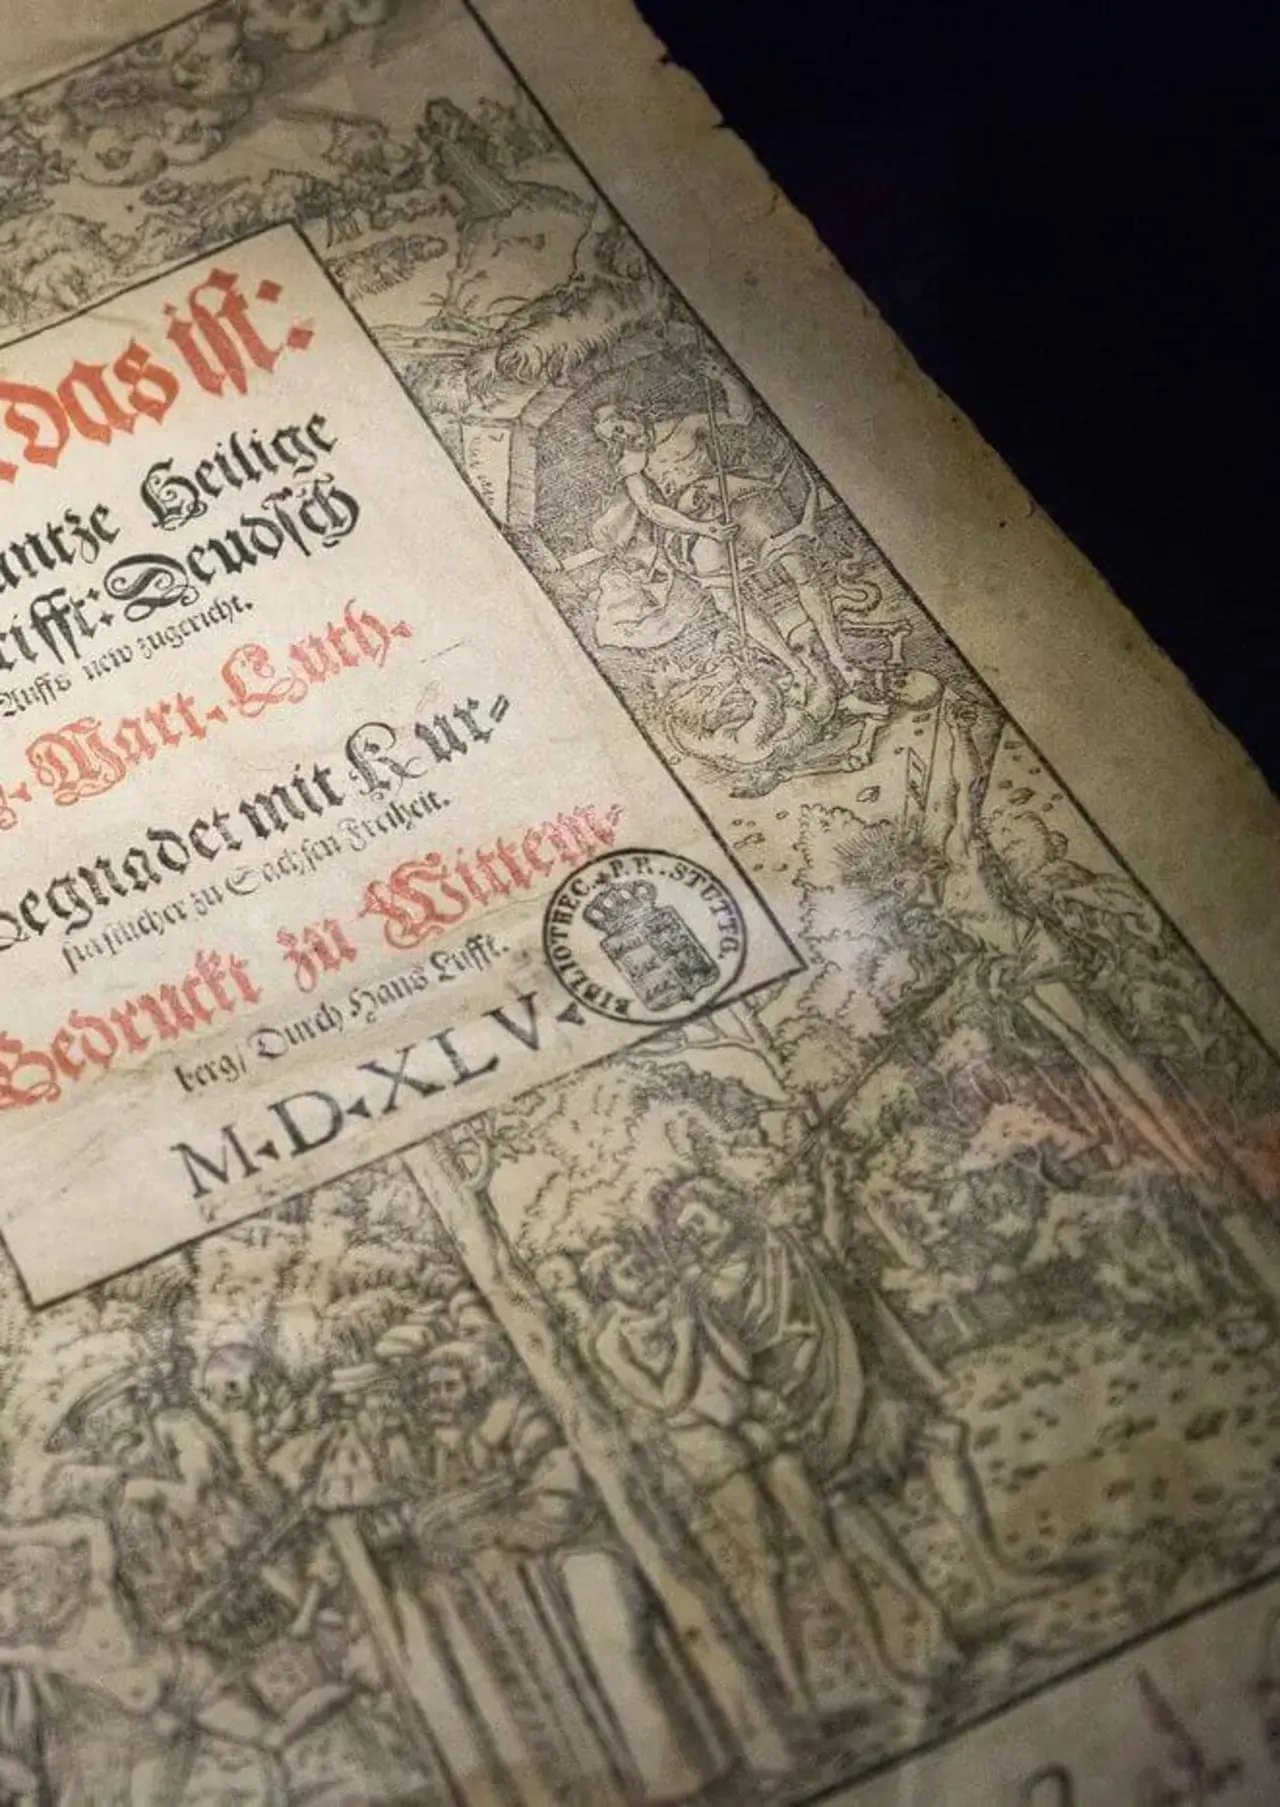 das ist:
antze Heilige
rifft: Deudsch
Auffs new zugericht.
D. Mart. Luth.
Begnadet mit Kur-
fürstlicher zu Sachsen Freiheit.
Gedruckt zu Wittem-
berg/ Durch Hans Lufft.
M.D.XLV.
BIBLIOTHEC. P. R. STUTTG.